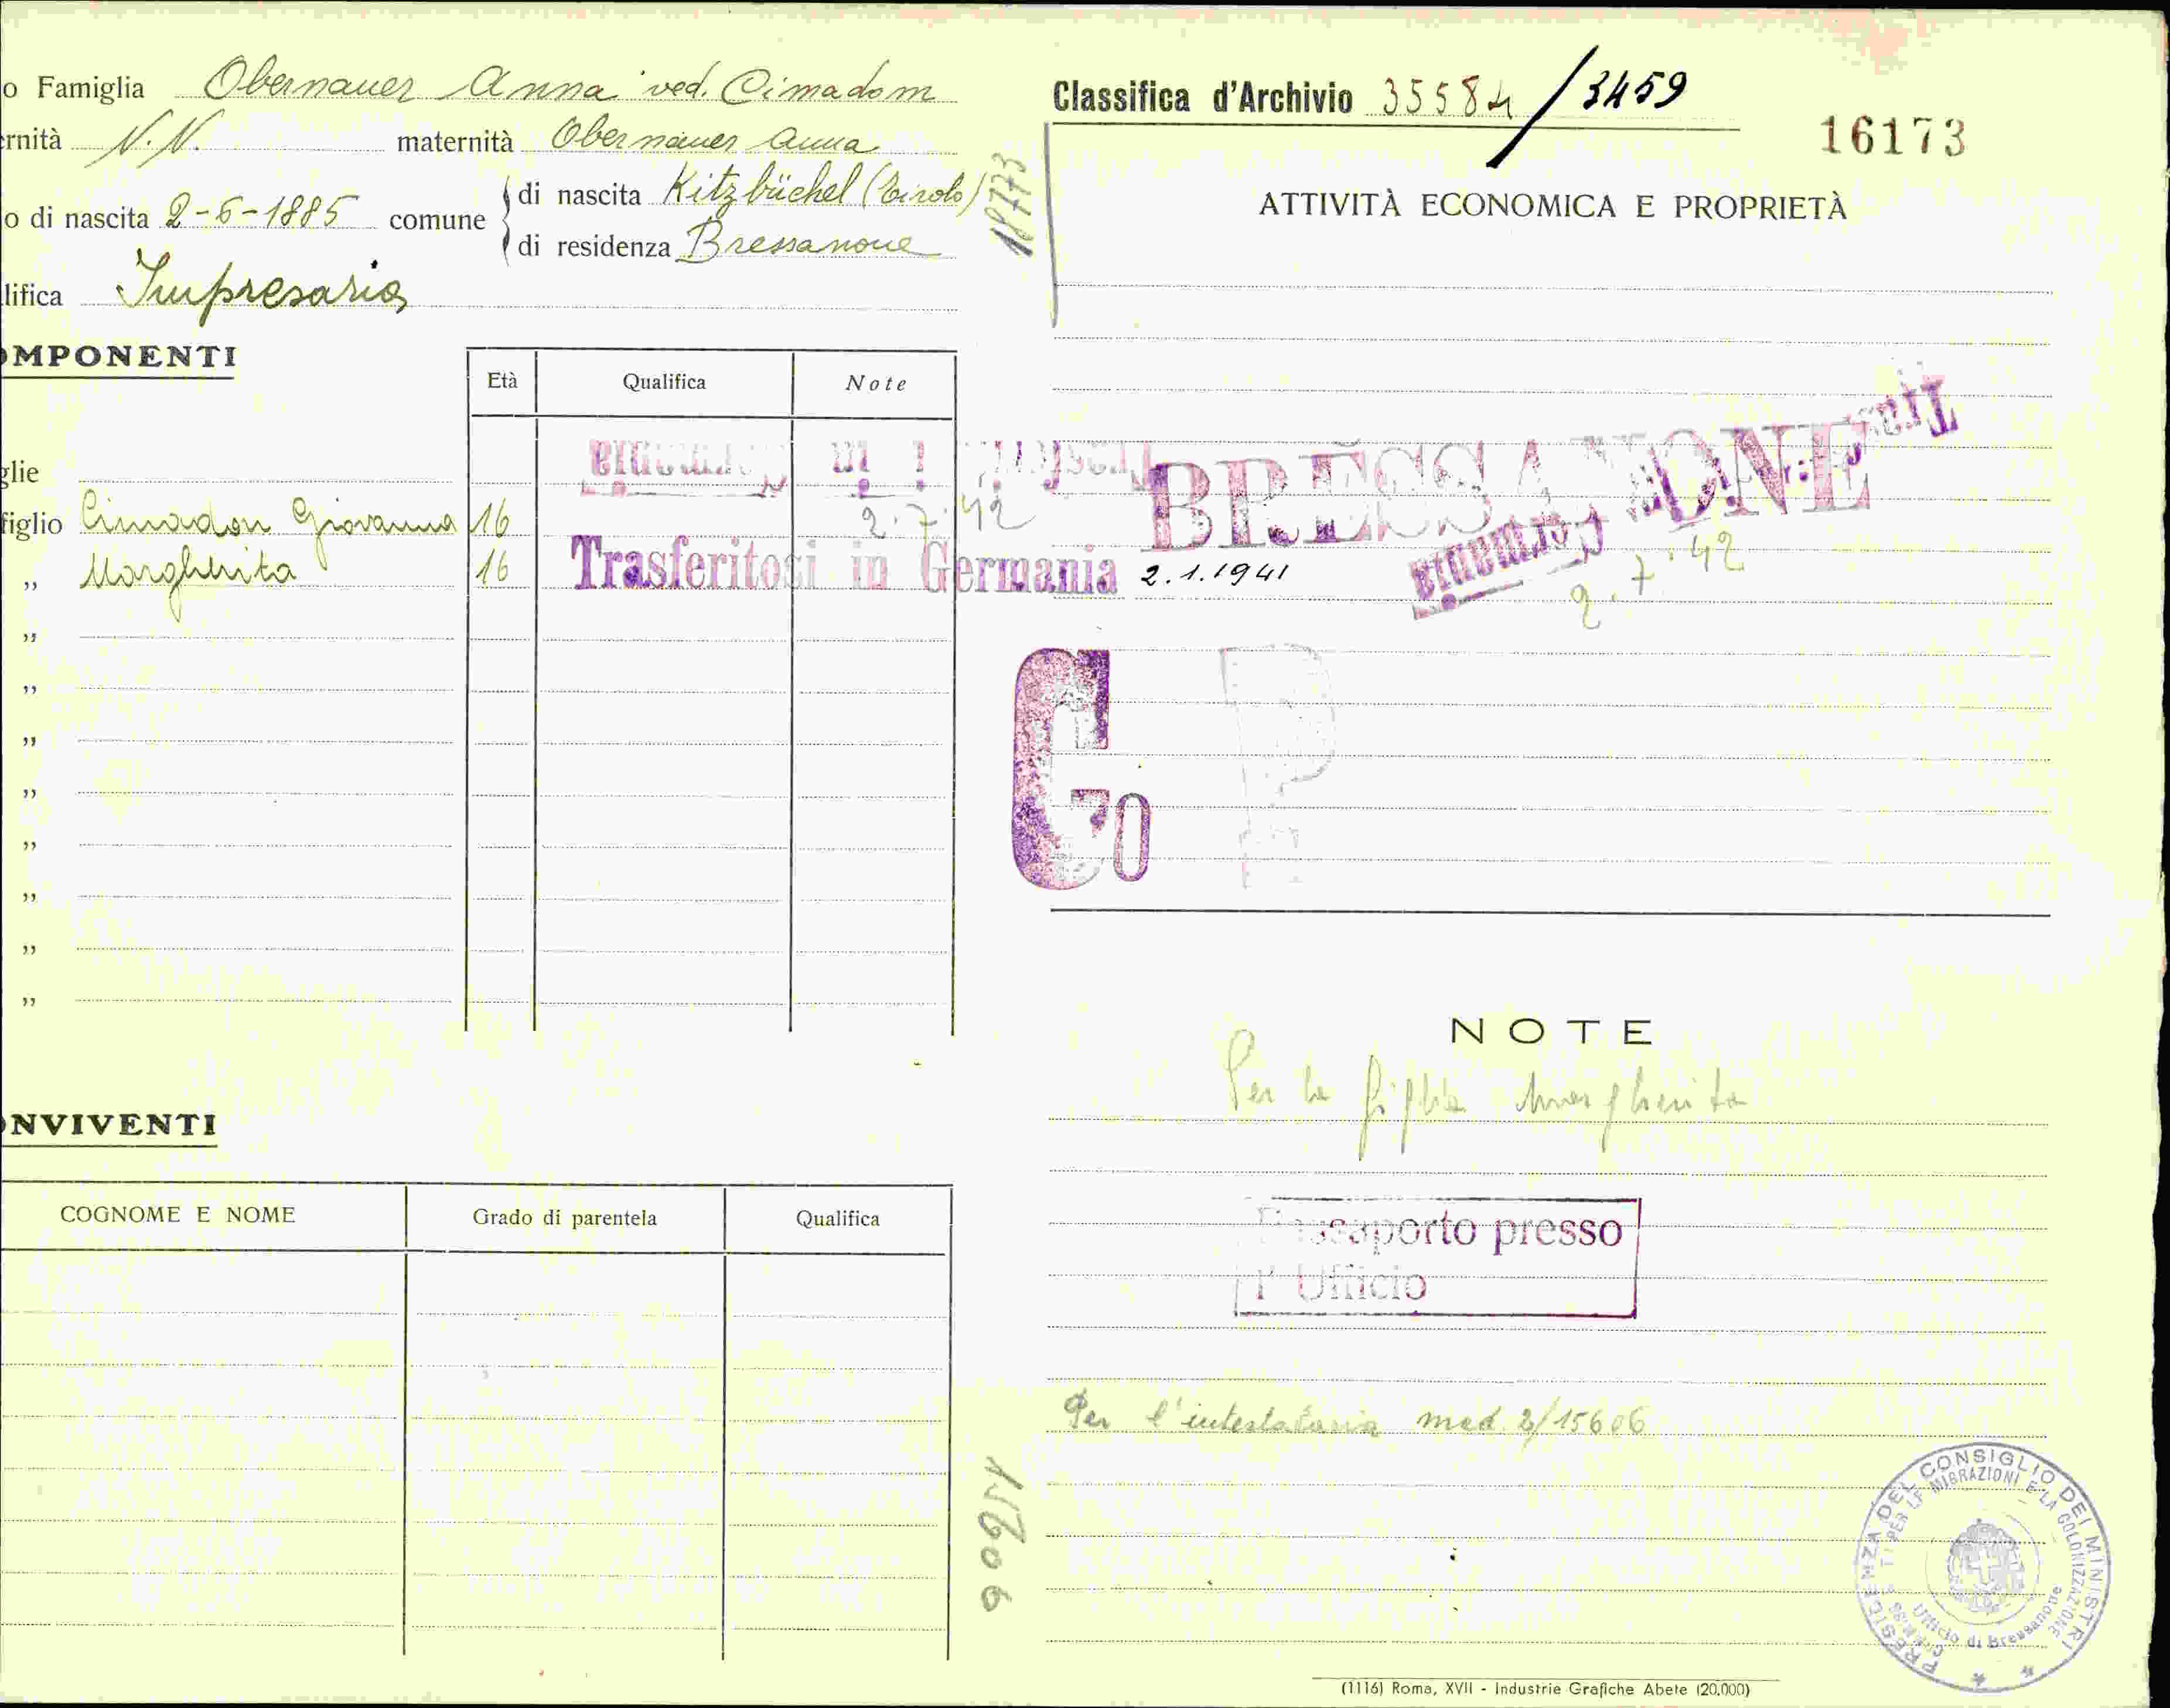 o Famiglia Obernauer Anna ved. Cimadom
ernità N.N. maternità Obernauer Anna
o di nascita 2-6-1885 comune di nascita Kitzbüchel (Tirolo)
di residenza Bressanone
lifica Impresaria
OMPONENTI
Età Qualifica Note
glie
figlio Cimadon Giovanna 16
2.7.42
,, Margherita 16 Trasferitosi in Germania 2.1.1941
,,
,,
,,
,,
,,
,,
,,
,,
ONVIVENTI
COGNOME E NOME Grado di parentela Qualifica
18773
Classifica d'Archivio 35584/3459
16173
ATTIVITÀ ECONOMICA E PROPRIETÀ
BRESSANONE
Germania
2.7.42
G
70
P
NOTE
Per la figlia Margherita
Passaporto presso
l'Ufficio
Per l'intestataria mod. 2/15606
PRESIDENZA DEL CONSIGLIO DEI MINISTRI
PER LE MIGRAZIONI E LA COLONIZZAZIONE
Ufficio di Bressanone
(1116) Roma, XVII - Industrie Grafiche Abete (20.000)